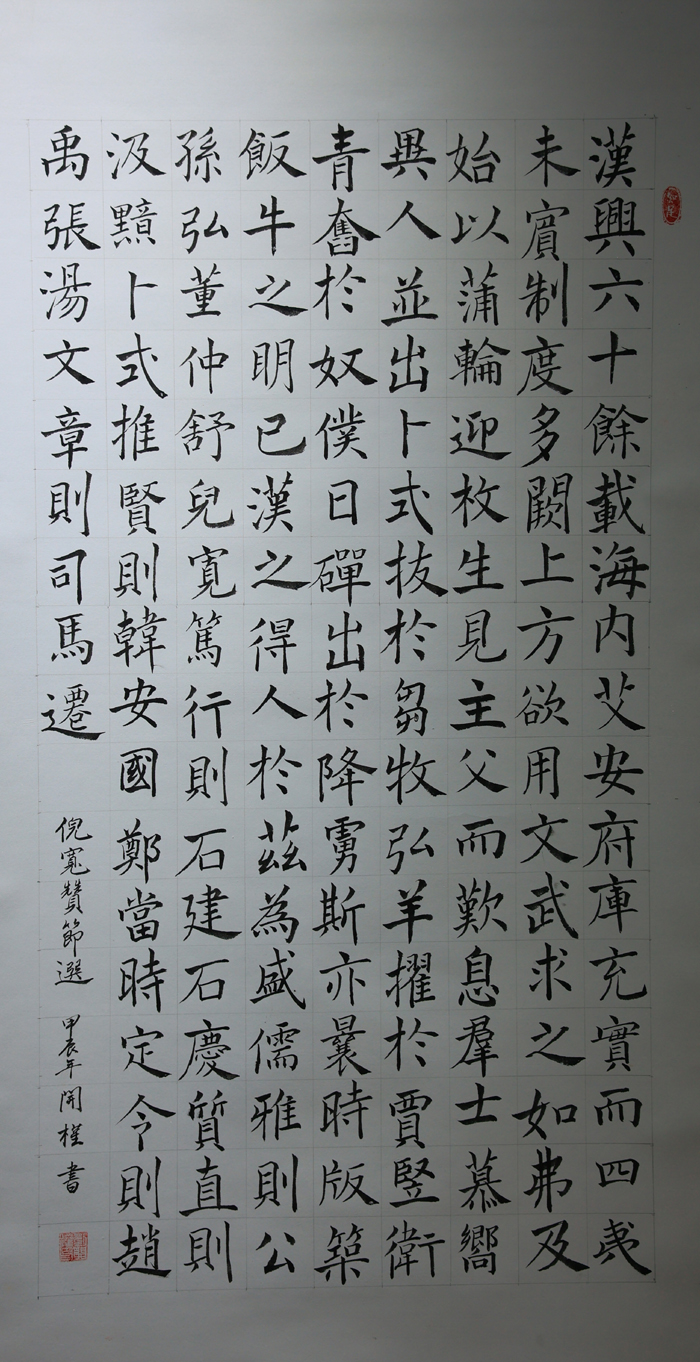 漢興六十餘載海内艾安府庫充實而四夷
未賓制度多闕上方欲用文武求之如弗及
始以蒲輪迎枚生見主父而歎息羣士慕嚮
異人並出卜式拔於芻牧弘羊擢於賈竪衛
青奮於奴僕日磾出於降虜斯亦曩時版築
飯牛之明已漢之得人於茲為盛儒雅則公
孫弘董仲舒兒寬篤行則石建石慶質直則
汲黯卜式推賢則韓安國鄭當時定令則趙
禹張湯文章則司馬遷
倪寬贊節選 甲辰年開書